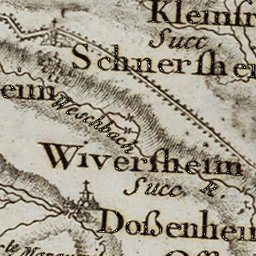 Kleinfr
Succ
Schnershei
eim
Weschbach
Wiversheim
Succ R.
Doßenheim